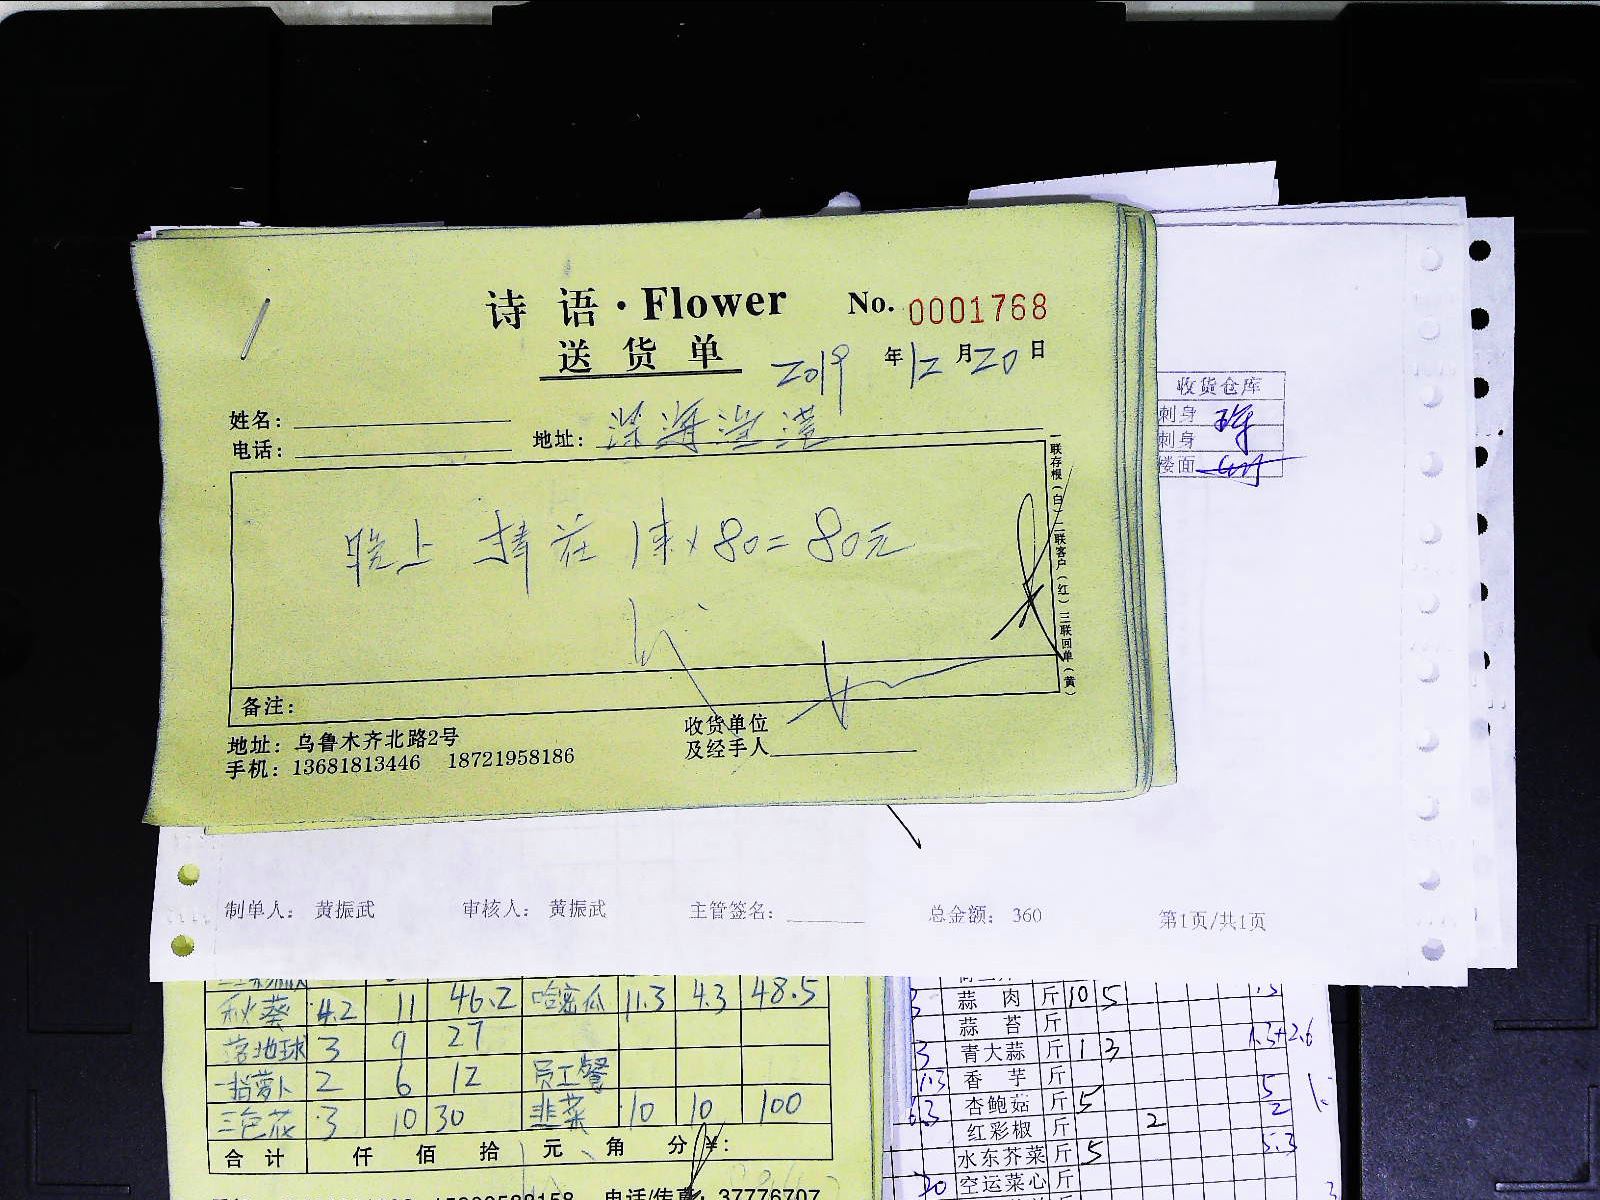 诗 语·Flower No. 0001768
送 货 单 2019 年12月20日
姓名:
电话: 地址:
晚上 捧花 1束×80=80元
一联存根(白)二联客户(红)三联回单(黄)
备注:
地址: 乌鲁木齐北路2号 收货单位
手机: 13681813446 18721958186 及经手人
收货仓库
刺身
刺身
楼面
制单人: 黄振武 审核人: 黄振武 主管签名: 总金额: 360 第1页/共1页
秋葵 4.2 11 46.2 哈密瓜 11.3 4.3 48.5
落地球 3 9 27
一指萝卜 2 6 12 员工餐
三色花 3 10 30 韭菜 10 10 100
合计 仟 佰 拾 元 角 分 ¥:
电话/传真: 37776707
3 蒜肉 斤 10 5
蒜苔 斤
3 青大蒜 斤 1 3 1.3+2.6
1.3 香芋 斤 5
6.3 杏鲍菇 斤 5 2
红彩椒 斤 2
水东芥菜 斤 5 5.3
空运菜心 斤